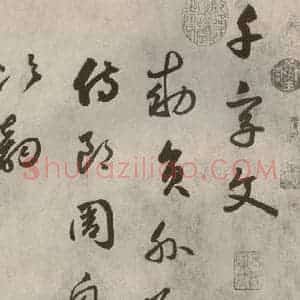 千字文
勅員外
侍郎周
次韵
Shufaziliao.com